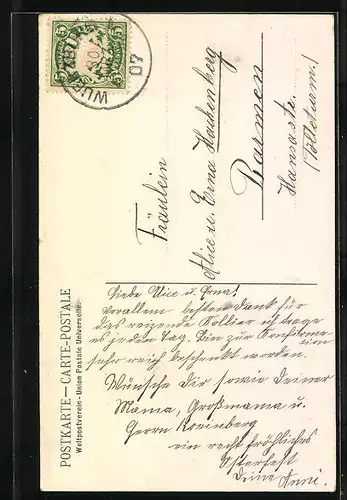 WÜRZBURG
07
5 5
POSTKARTE — CARTE-POSTALE
Weltpostverein - Union Postale Universelle
Fräulein
Alice u. Erna Hackenberg
Barmen
Hansastr.
(Tölleturm.)
Liebe Alice u. Erna!
Vor allem besten Dank für
das reizende Kollier ich trage
es jeden Tag. Bin zur Konfirmat
ion
sehr reich beschenkt worden.
Wünsche Dir sowie Deiner
Mama, Großmama u.
Herrn
ein recht fröhliches
Osterfest
Deine Anni.